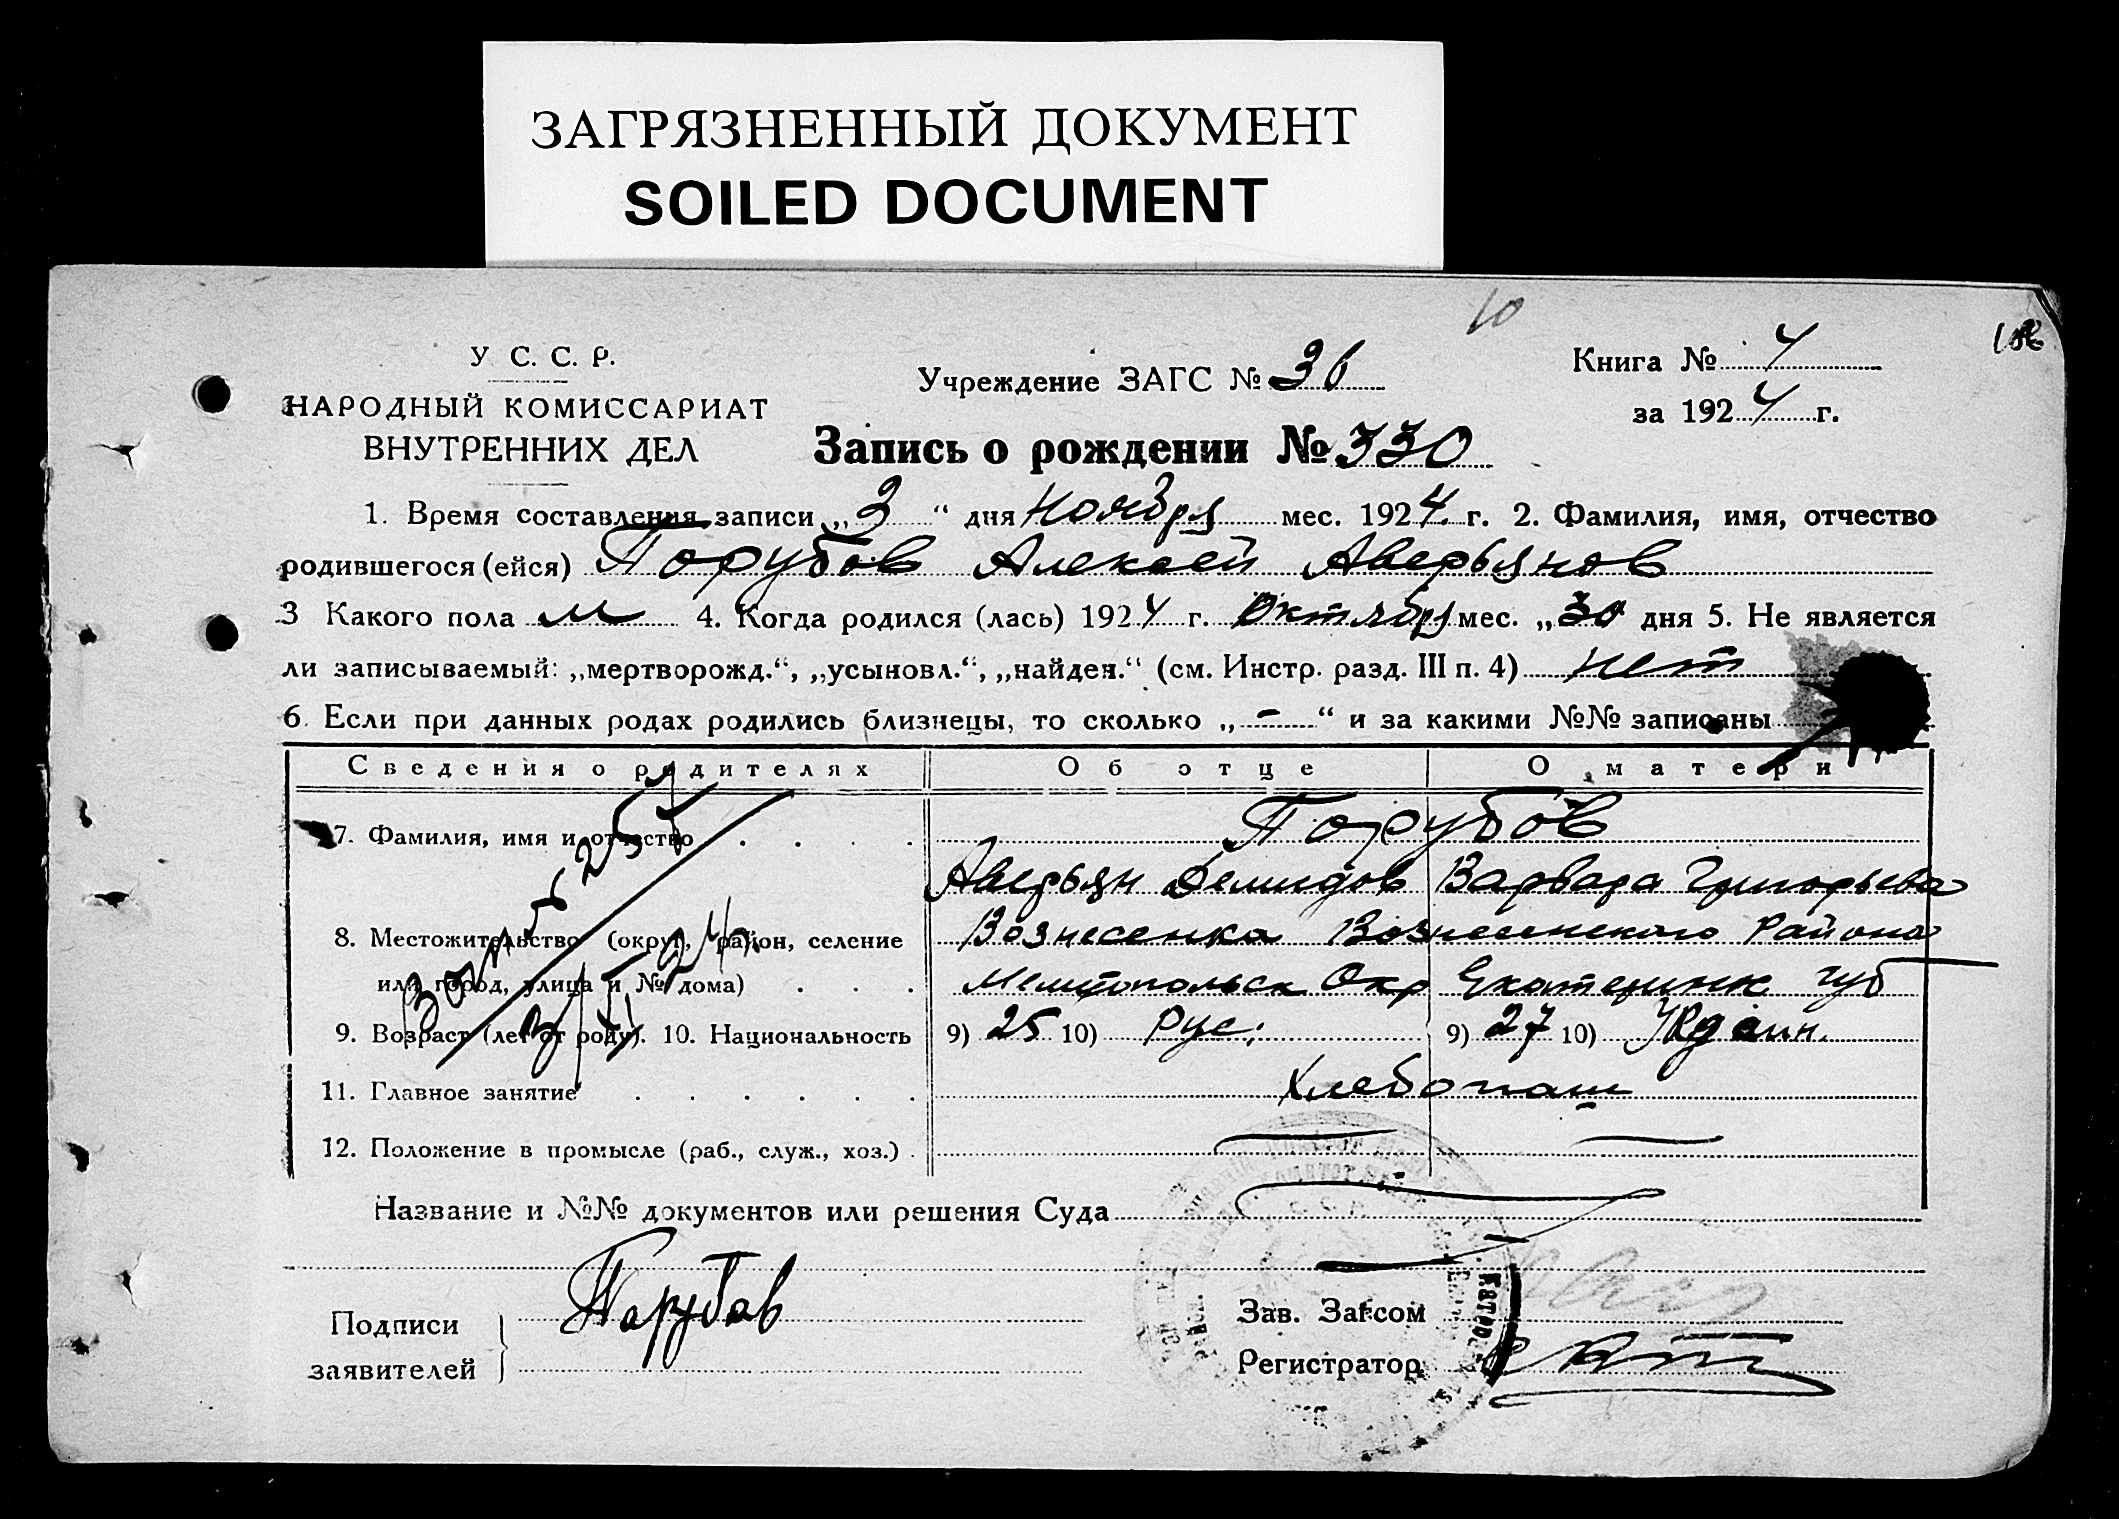 ЗАГРЯЗНЕННЫЙ ДОКУМЕНТ
SOILED DOCUMENT
10
У. С. С. Р.
НАРОДНЫЙ КОМИССАРИАТ
ВНУТРЕННИХ ДЕЛ
Учреждение ЗАГС № 36
Книга № 4
за 1924 г.
Запись о рождении № 330
1. Время составления записи „3“ дня Ноября мес. 1924 г. 2. Фамилия, имя, отчество
родившегося (ейся) Порубов Алексей Аверьянов
3 Какого пола м 4. Когда родился (лась) 1924 г. Октября мес. „30 дня 5. Не является
ли записываемый: „мертворожд.“, „усыновл.“, „найден.“ (см. Инстр. разд. III п. 4) нет
6. Если при данных родах родились близнецы, то сколько „-“ и за какими №№ записаны
Сведения о родителях Об отце О матери
7. Фамилия, имя и отчество Порубов
Аверьян Демидов Варвара Григорьева
8. Местожительство (округ, район, селение Вознесенка Вознесенского Района
или город, улица и № дома) Мелитопольск Окр Екатеринк губ
9. Возраст (лет от роду). 10. Национальность 9) 25 10) Рус. 9) 27 10) Украин.
11. Главное занятие Хлебопаш
12. Положение в промысле (раб., служ., хоз.)
Название и №№ документов или решения Суда
Подписи
заявителей
Порубов
Зав. Загсом
Регистратор